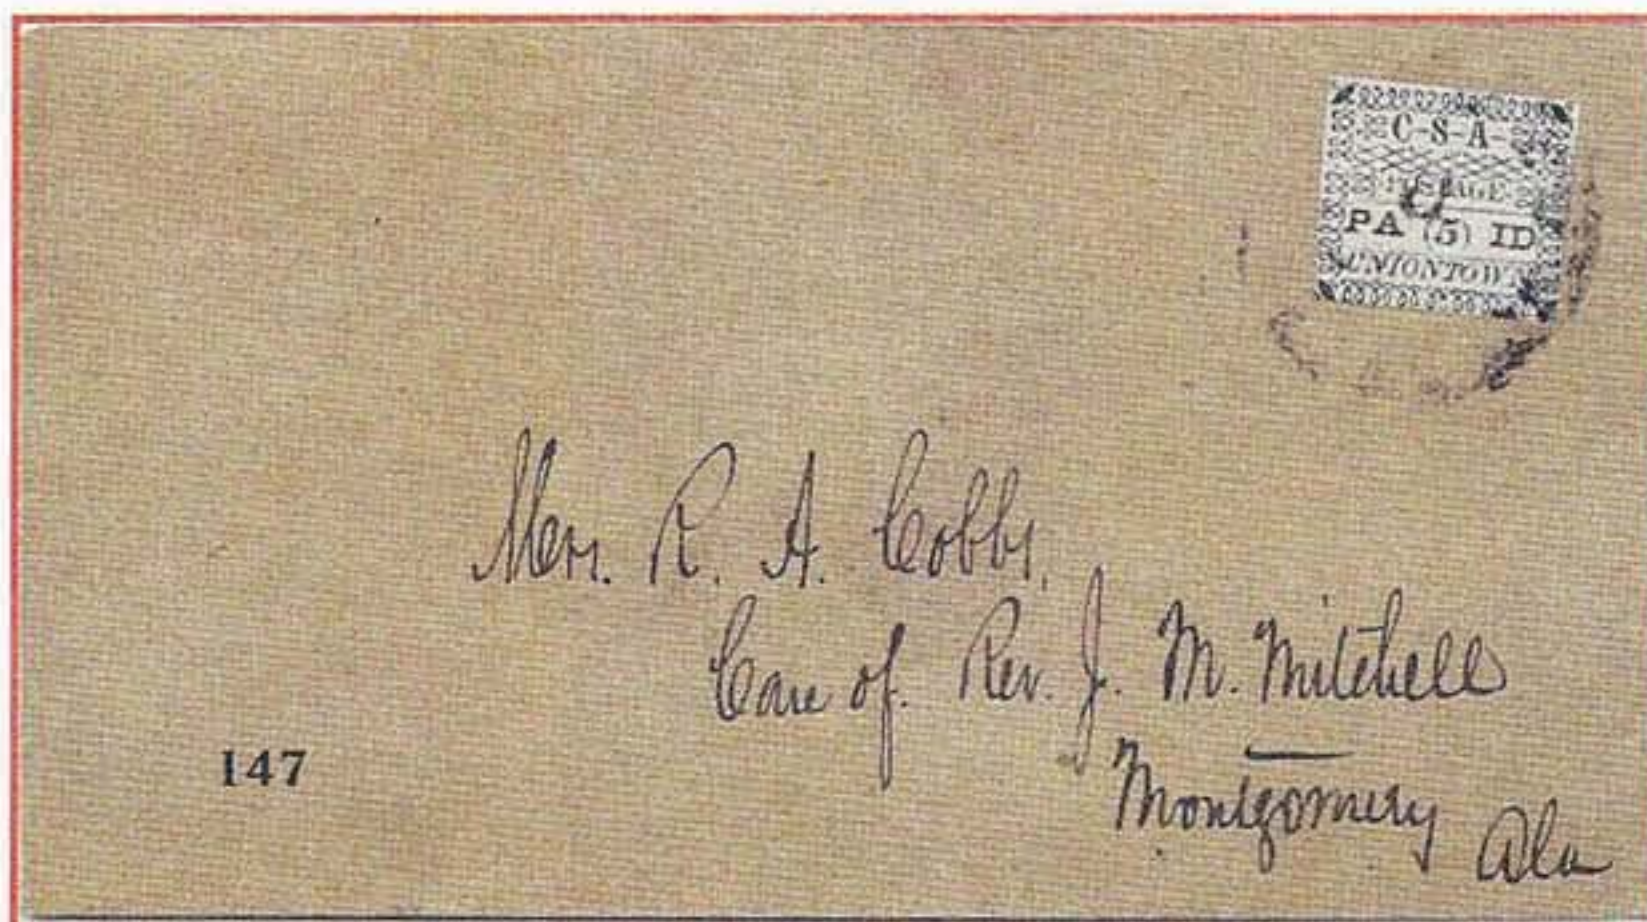 C-S-A-
POSTAGE
PA (5) ID
UNIONTOW
Mrs. R. A. Cobbs.
Care of. Rev. J. M. Mitchell
Montgomery Ala
147